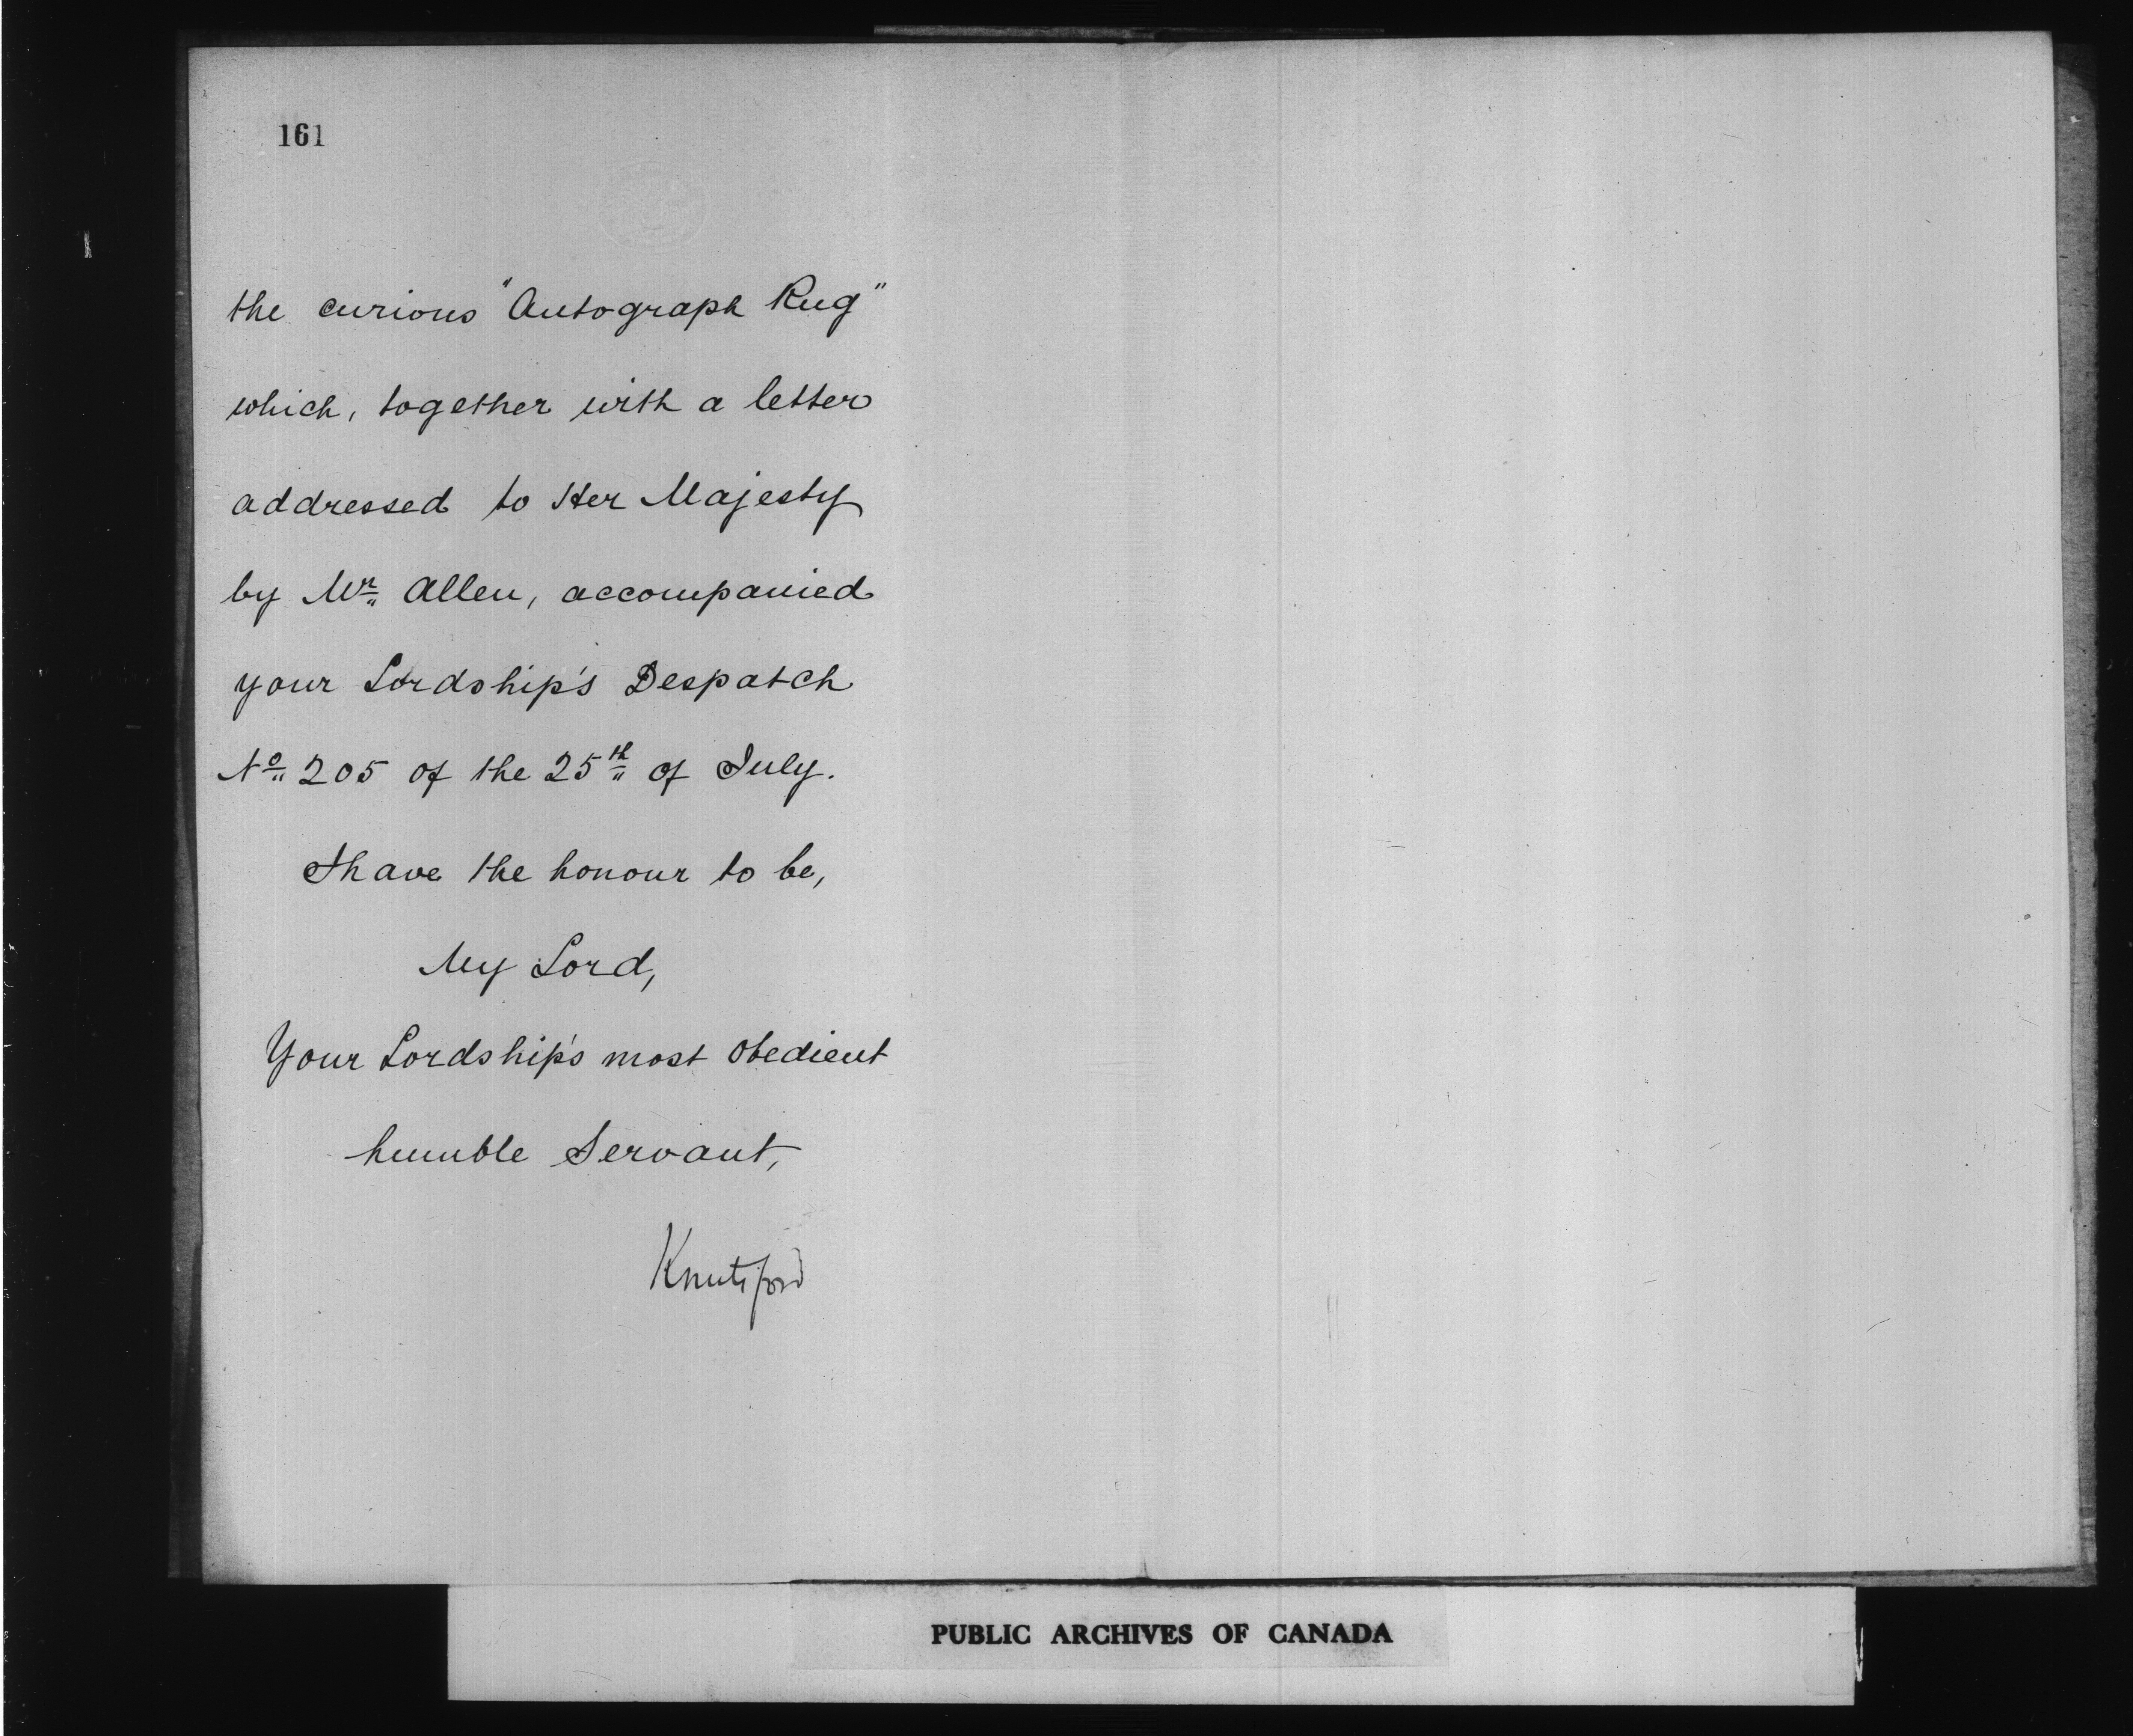 161
the curious "Autograph Rug"
which, together with a letter
addressed to Her Majesty
by Mr. Allen, accompanied
your Lordship's Despatch
No. 205 of the 25th of July.
I have the honour to be,
My Lord,
Your Lordship's most obedient
humble Servant,
Knutsford
PUBLIC ARCHIVES OF CANADA